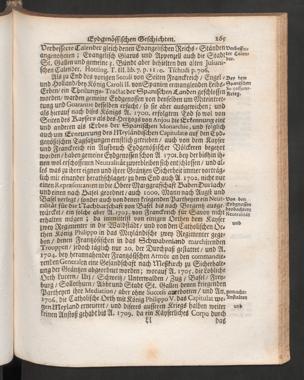 Eydgenössischen Geschichten. 265
Verbesserte Calender gleich denen Evangelischen Reichs-Ständen
angenommen; Evangelisch Glarus und Appenzell auch die Stadt
St. Gallen und gemeine 3. Bündt aber behielten den alten Juliani-
schen Calender. Hotting. T. III. lib. 7. p. 11. Tschudi p. 706.
Als zu End des vorigen Seculi von Seiten Franckreich / Engel-
und Holland bey König Caroli II. von Spanien ermanglenden Leibs-
Erben / ein Theilungs-Tractat der Spanischen Landen geschlossen
worden; warden gemeine Eydgenossen von denselben um
und Guarantie desselben ersucht / so sie aber ausgewichen; und
als hierauf nach dises Königs A. 1700. erfolgtem End so wol von
Seiten des Kaysers als des Hertzogs von Anjou die Ernennung eins
und anderen als Erben der Spanischen Monarchie, und folglich
auch um Erneuerung des Meyländischen Capitulats an den Eyd-
genössischen Tagsatzungen eyfrig getrieben / auch von dem Kayser
und Franckreich ein Aufbruch Eydgenössischer Völckeren begehrt
worden / haben gemeine Eydgenossen schon A. 1701. bey der bißher ih-
nen wol erschossenen Neutralität zuverbleiben sich entschlossen / und als
was zu ihrer eignen und ihrer Gräntzen Sicherheit immer
lich mit einander berathschlaget; zu dem End auch A. 1702. nicht nur
einen Repræsentanten in die Obere Marggraffschaft Baden
und einen nach Basel geordnet / auch 1000. Mann nach Augst und
Basel verlegt / sonder auch von denen kriegenden Partheyen eine Neu-
tralität für die Nachbarschaft von Basel bis nach Bregentz ausge-
würckt / ein solche aber A. 1703. von Franckreich für Savoi nicht
erhalten mögen; da inmittelst von einigen Orthen dem Kayser
zwey Regimenter in die Waldstädt / und von den Catholischen Or-
then König Philippo in das Meyländische zwey Regimenter gege-
ben / denen Frantzösischen in das Schwabenland marchierenden
Trouppen / jedoch täglich nur 20. der Durchpaß gestattet / und A.
1704. bey herannahender Frantzösischen Armée an den commandie-
renden Generalen eine Gesandtschaft nach Meßkirch zu Sicherhaltung
der Gräntzen abgeordnet worden; worauf A. 1705. die Lobliche
Orth Lucern / Uri / Schweitz / Unterwalden / Zug / Basel / Frey-
burg / Solothurn / Abbt und Stadt St. Gallen denen kriegenden
Partheyen ihre Mediation / aber ohne Success anerbotten / und An.
1706. die Catholische Orth mit König Philippo V. das Capitulat we-
gen Meyland erneuert / und diseres äusseren Kriegs halben weiter
keinen Anstoß gehabt bis A. 1709. da ein Käyserliches Corps durch
Ll das
Verbesser-
ter Calen-
der.
Bey dem
Spanischen
Succession-
Krieg.
Von den
Eydgenossen
Neutralität
und
gemachte
Anstalten
und